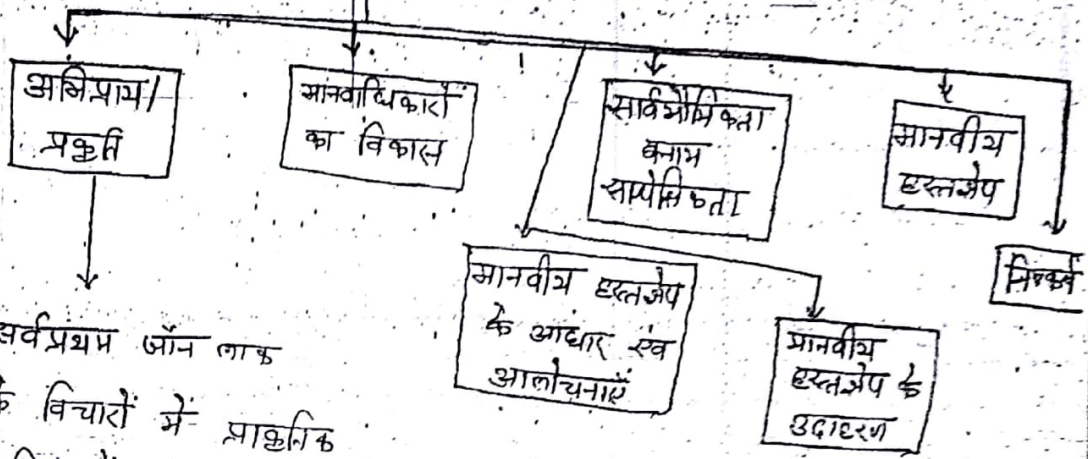 अभिप्राय/
प्रकृति
मानवाधिकारों
का विकास
सार्वभौमिकता
बनाम
सापेक्षिकता
मानवीय
हस्तक्षेप
निष्कर्ष
मानवीय हस्तक्षेप
के आधार एवं
आलोचनाएँ
मानवीय
हस्तक्षेप के
उदाहरण
सर्वप्रथम जॉन लाक
के विचारों में प्राकृतिक